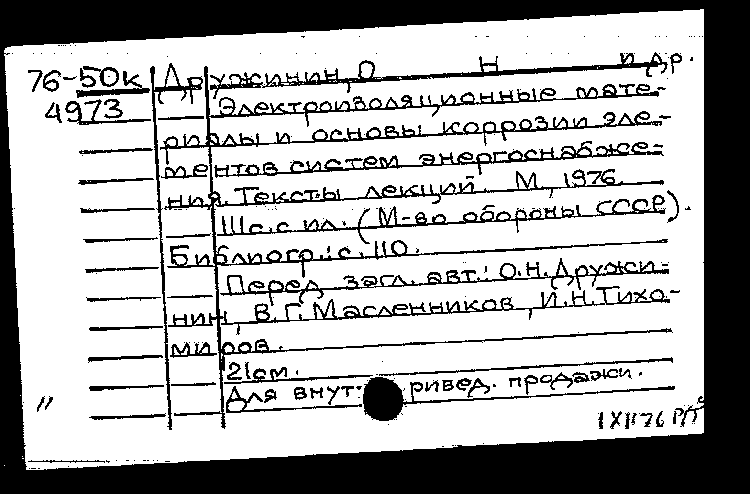 76-50к Дружинин, О Н и др.
4973 Электроизоляционные мате-
риалы и основы коррозии эле-
ментов систем энергоснабже-
ния. Тексты лекций. М, 1976.
111с. с ил. (М-во обороны СССР).
Библиогр.: с. 110.
Перед загл. авт.: О.Н. Дружи-
нин, В.Г. Масленников, И.Н. Тихо-
миров.
21см.
Для внут. ривед. продажи.
" 1 XII 76